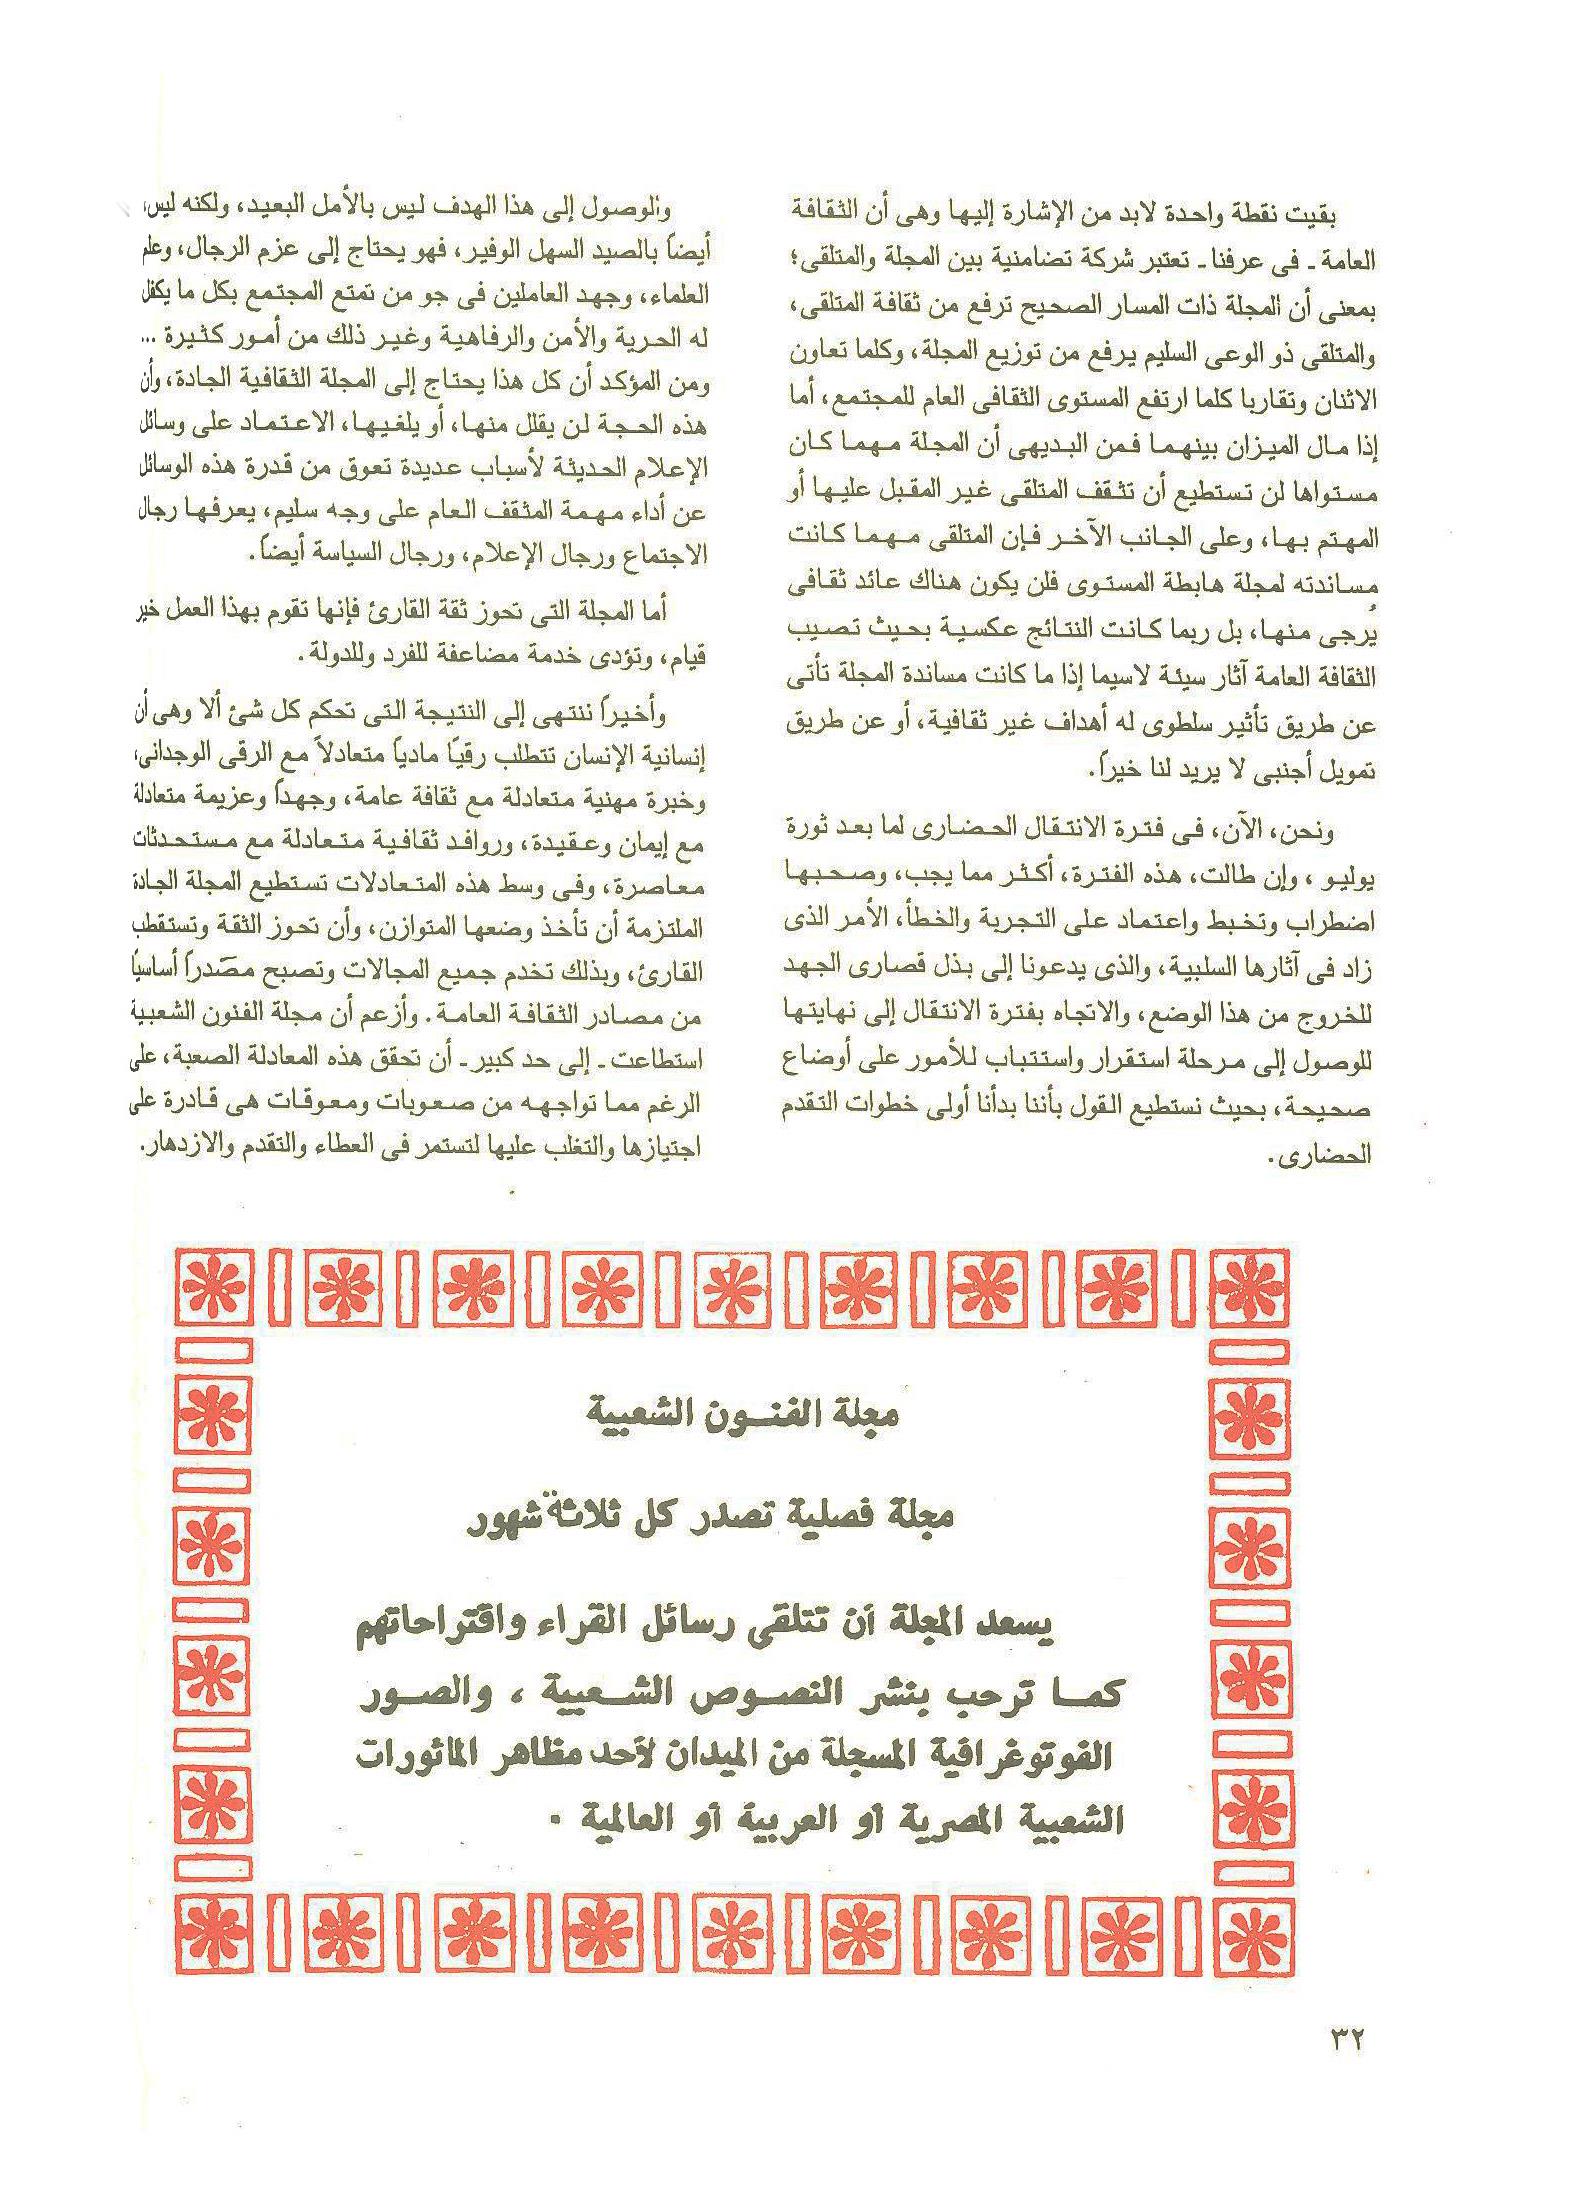 بقيت نقطة واحدة لابد من الإشارة إليها وهى أن الثقافة
العامة ـ فى عرفنا ـ تعتبر شركة تضامنية بين المجلة والمتلقى؛
بمعنى أن المجلة ذات المسار الصحيح ترفع من ثقافة المتلقى،
والمتلقى ذو الوعى السليم يرفع من توزيع المجلة، وكلما تعاون
الاثنان وتقاربا كلما ارتفع المستوى الثقافى العام للمجتمع، أما
إذا مال الميزان بينهما فمن البديهى أن المجلة مهما كان
مستواها لن تستطيع أن تثقف المتلقى غير المقبل عليها أو
المهتم بها، وعلى الجانب الآخر فإن المتلقى مهما كانت
مساندته لمجلة هابطة المستوى فلن يكون هناك عائد ثقافى
يُرجى منها، بل ربما كانت النتائج عكسية بحيث تصيب
الثقافة العامة آثار سيئة لاسيما إذا ما كانت مساندة المجلة تأتى
عن طريق تأثير سلطوى له أهداف غير ثقافية، أو عن طريق
تمويل أجنبى لا يريد لنا خيراً.
ونحن، الآن، فى فترة الانتقال الحضارى لما بعد ثورة
يوليو ، وإن طالت، هذه الفترة، أكثر مما يجب، وصحبها
اضطراب وتخبط واعتماد على التجربة والخطأ، الأمر الذى
زاد فى آثارها السلبية، والذى يدعونا إلى بذل قصارى الجهد
للخروج من هذا الوضع، والاتجاه بفترة الانتقال إلى نهايتها
للوصول إلى مرحلة استقرار واستتباب للأمور على أوضاع
صحيحة، بحيث نستطيع القول بأننا بدأنا أولى خطوات التقدم
الحضارى.
والوصول إلى هذا الهدف ليس بالأمل البعيد، ولكنه ليس،
أيضاً بالصيد السهل الوفير، فهو يحتاج إلى عزم الرجال، وعلم
العلماء، وجهد العاملين فى جو من تمتع المجتمع بكل ما يكفل
له الحرية والأمن والرفاهية وغير ذلك من أمور كثيرة ...
ومن المؤكد أن كل هذا يحتاج إلى المجلة الثقافية الجادة، وأن
هذه الحجة لن يقلل منها، أو يلغيها، الاعتماد على وسائل
الإعلام الحديثة لأسباب عديدة تعوق من قدرة هذه الوسائل
عن أداء مهمة المثقف العام على وجه سليم، يعرفها رجال
الاجتماع ورجال الإعلام، ورجال السياسة أيضاً.
أما المجلة التى تحوز ثقة القارئ فإنها تقوم بهذا العمل خير
قيام، وتؤدى خدمة مضاعفة للفرد وللدولة.
وأخيراً ننتهى إلى النتيجة التى تحكم كل شئ ألا وهى أن
إنسانية الإنسان تتطلب رقيًا مادياً متعادلاً مع الرقى الوجدانى،
وخبرة مهنية متعادلة مع ثقافة عامة، وجهداً وعزيمة متعادلة
مع إيمان وعقيدة، وروافد ثقافية متعادلة مع مستحدثات
معاصرة، وفى وسط هذه المتعادلات تستطيع المجلة الجادة
الملتزمة أن تأخذ وضعها المتوازن، وأن تحوز الثقة وتستقطب
القارئ، وبذلك تخدم جميع المجالات وتصبح مصدراً أساسيًا
من مصادر الثقافة العامة. وأزعم أن مجلة الفنون الشعبية
استطاعت ـ إلى حد كبير ـ أن تحقق هذه المعادلة الصعبة، على
الرغم مما تواجهه من صعوبات ومعوقات هى قادرة على
اجتيازها والتغلب عليها لتستمر فى العطاء والتقدم والازدهار.
مجلة الفنون الشعبية
مجلة فصلية تصدر كل ثلاثة شهور
يسعد المجلة أن تتلقى رسائل القراء واقتراحاتهم
كما ترحب بنشر النصوص الشعبية ، والصور
الفوتوغرافية المسجلة من الميدان لأحد مظاهر المأثورات
الشعبية المصرية أو العربية أو العالمية .
٣٢